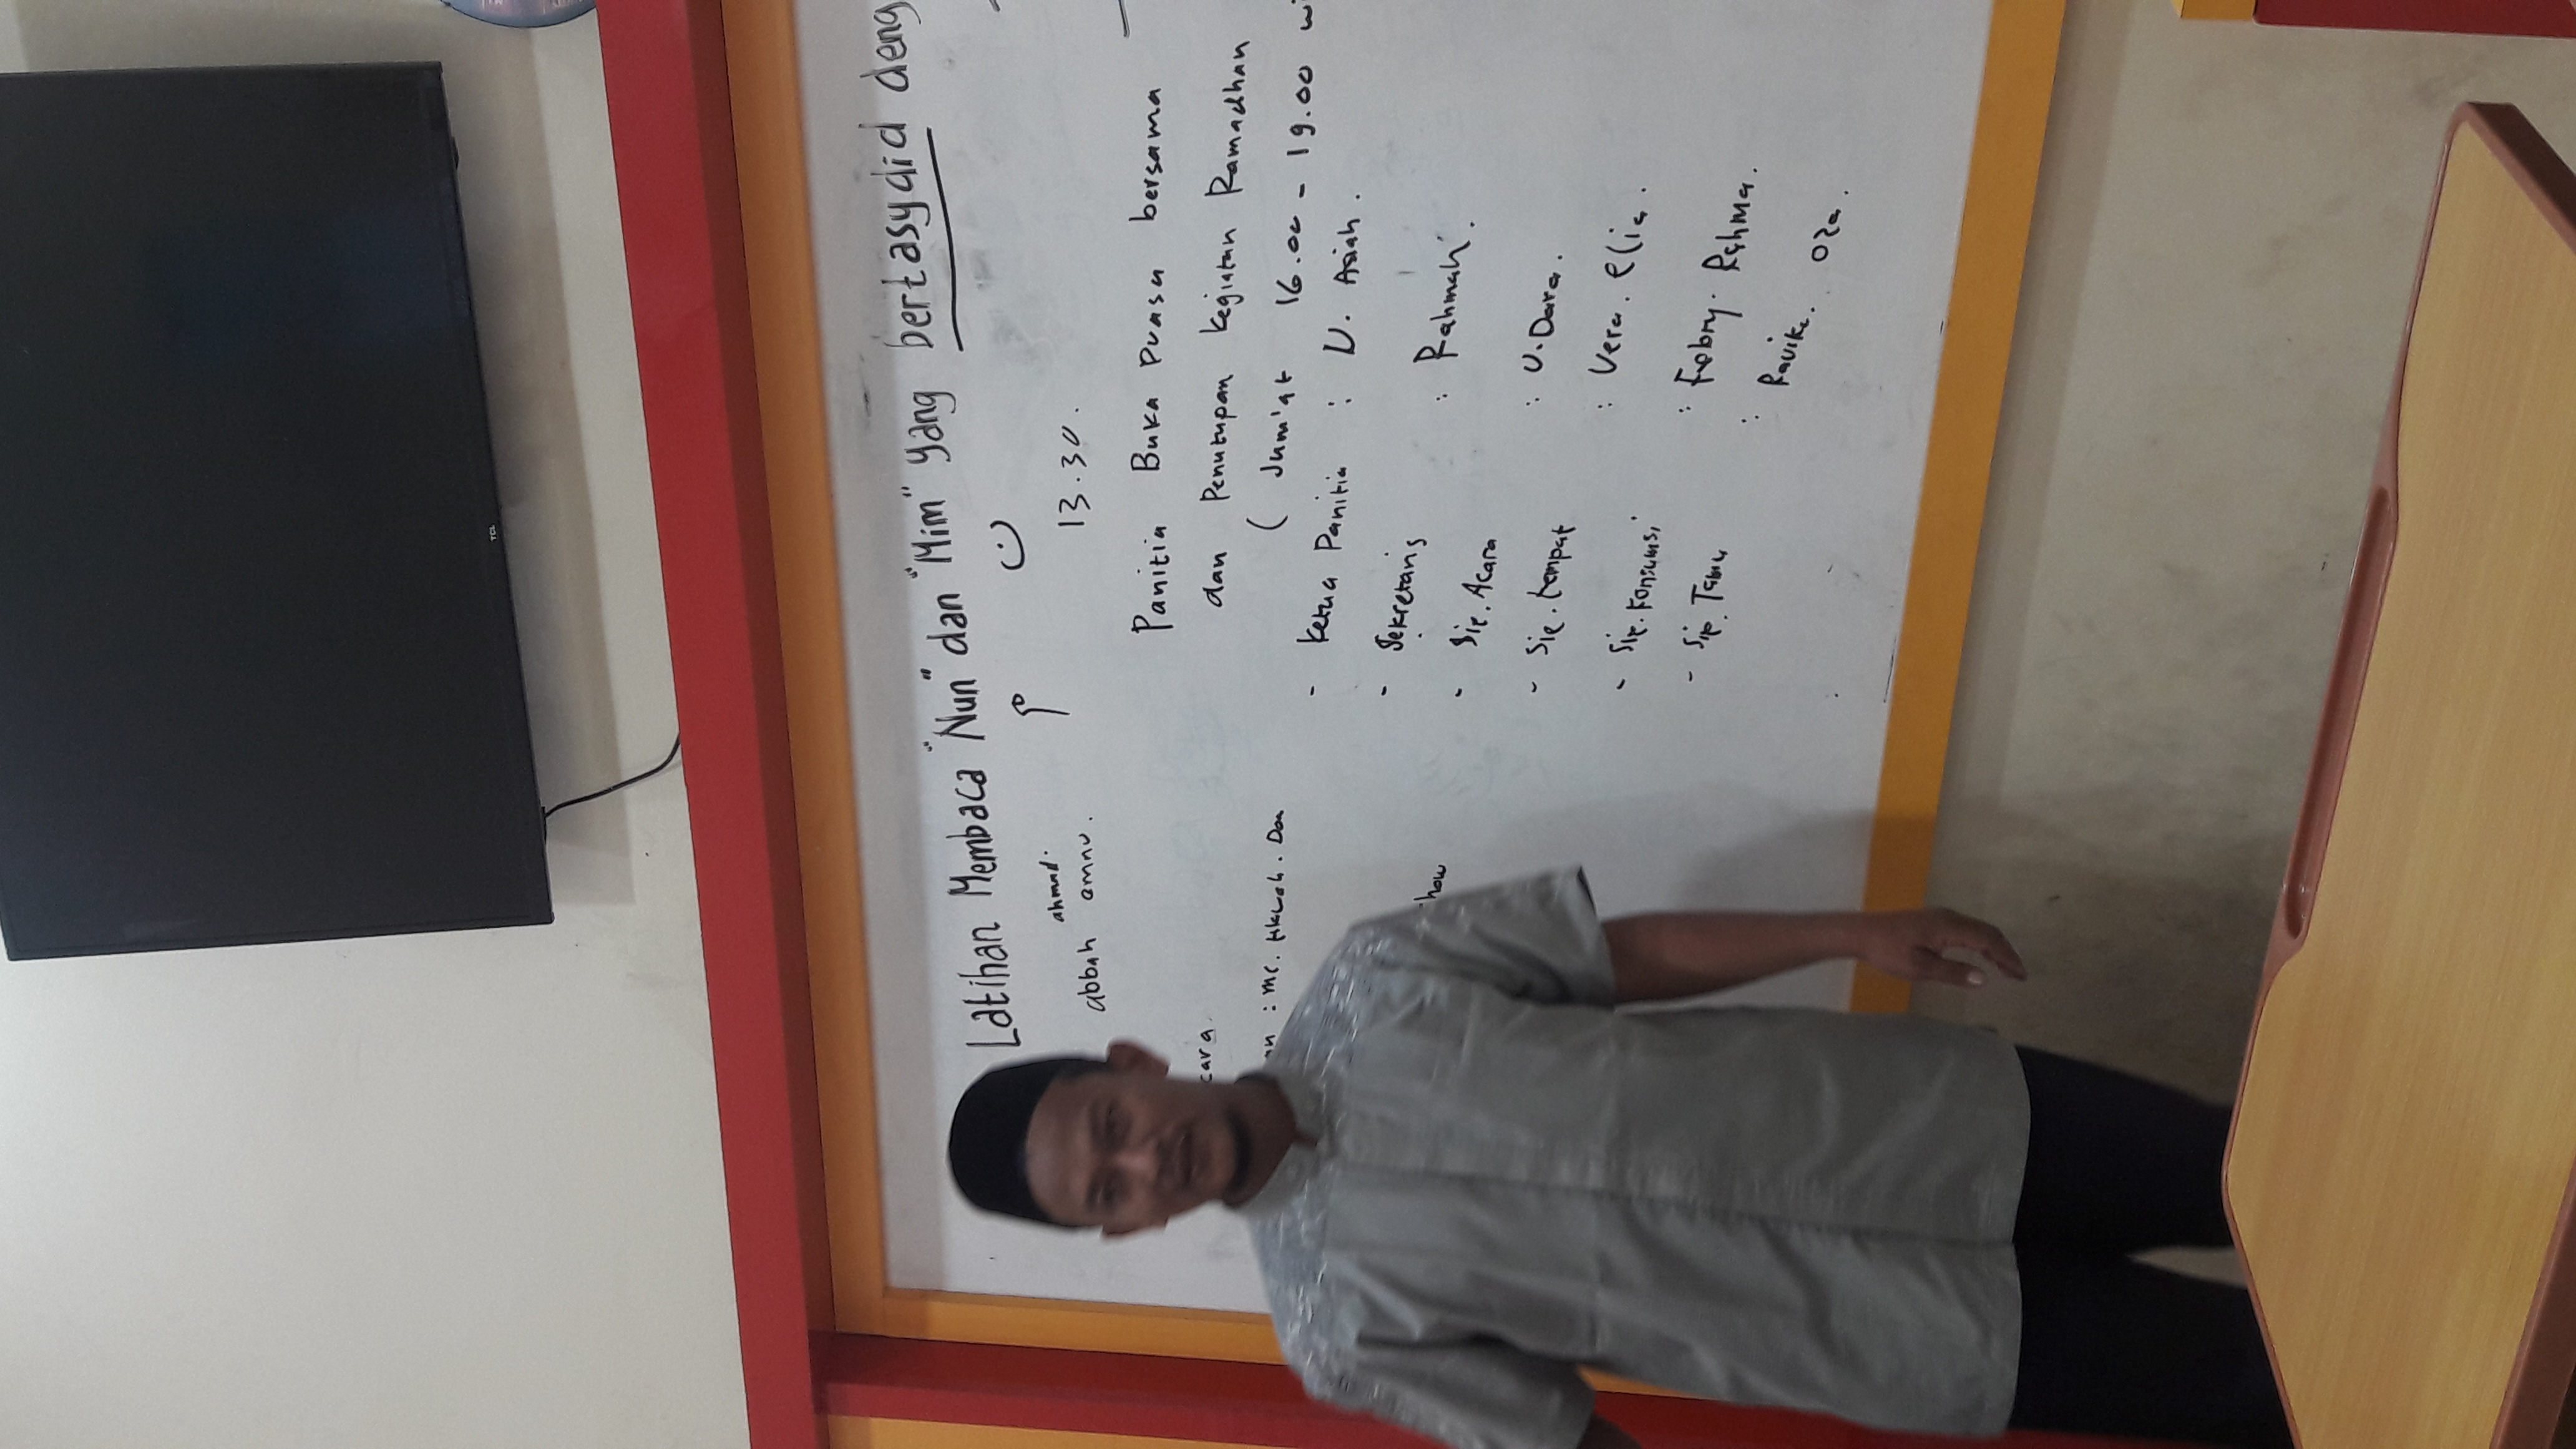 TCL
Latihan Membaca "Nun" dan "Mim" yang bertasydid deng
ahmad.
م ن
abbah ammu.
13.30.
Panitia Buka Puasa bersama
dan Penutupan kegiatan Ramadhan
( Jum'at 16.00 - 19.00 wi
cara.
an : mc. tilawah. Doa
how
- Ketua Panitia : U. Asiah.
- Sekretaris : Rahmah.
- Sie. Acara : U. Dara.
- Sie. tempat : Vera. elia.
- Sie. Konsumsi : Febry. Rahma.
- Sie. Tamu : Ravika. Oza.